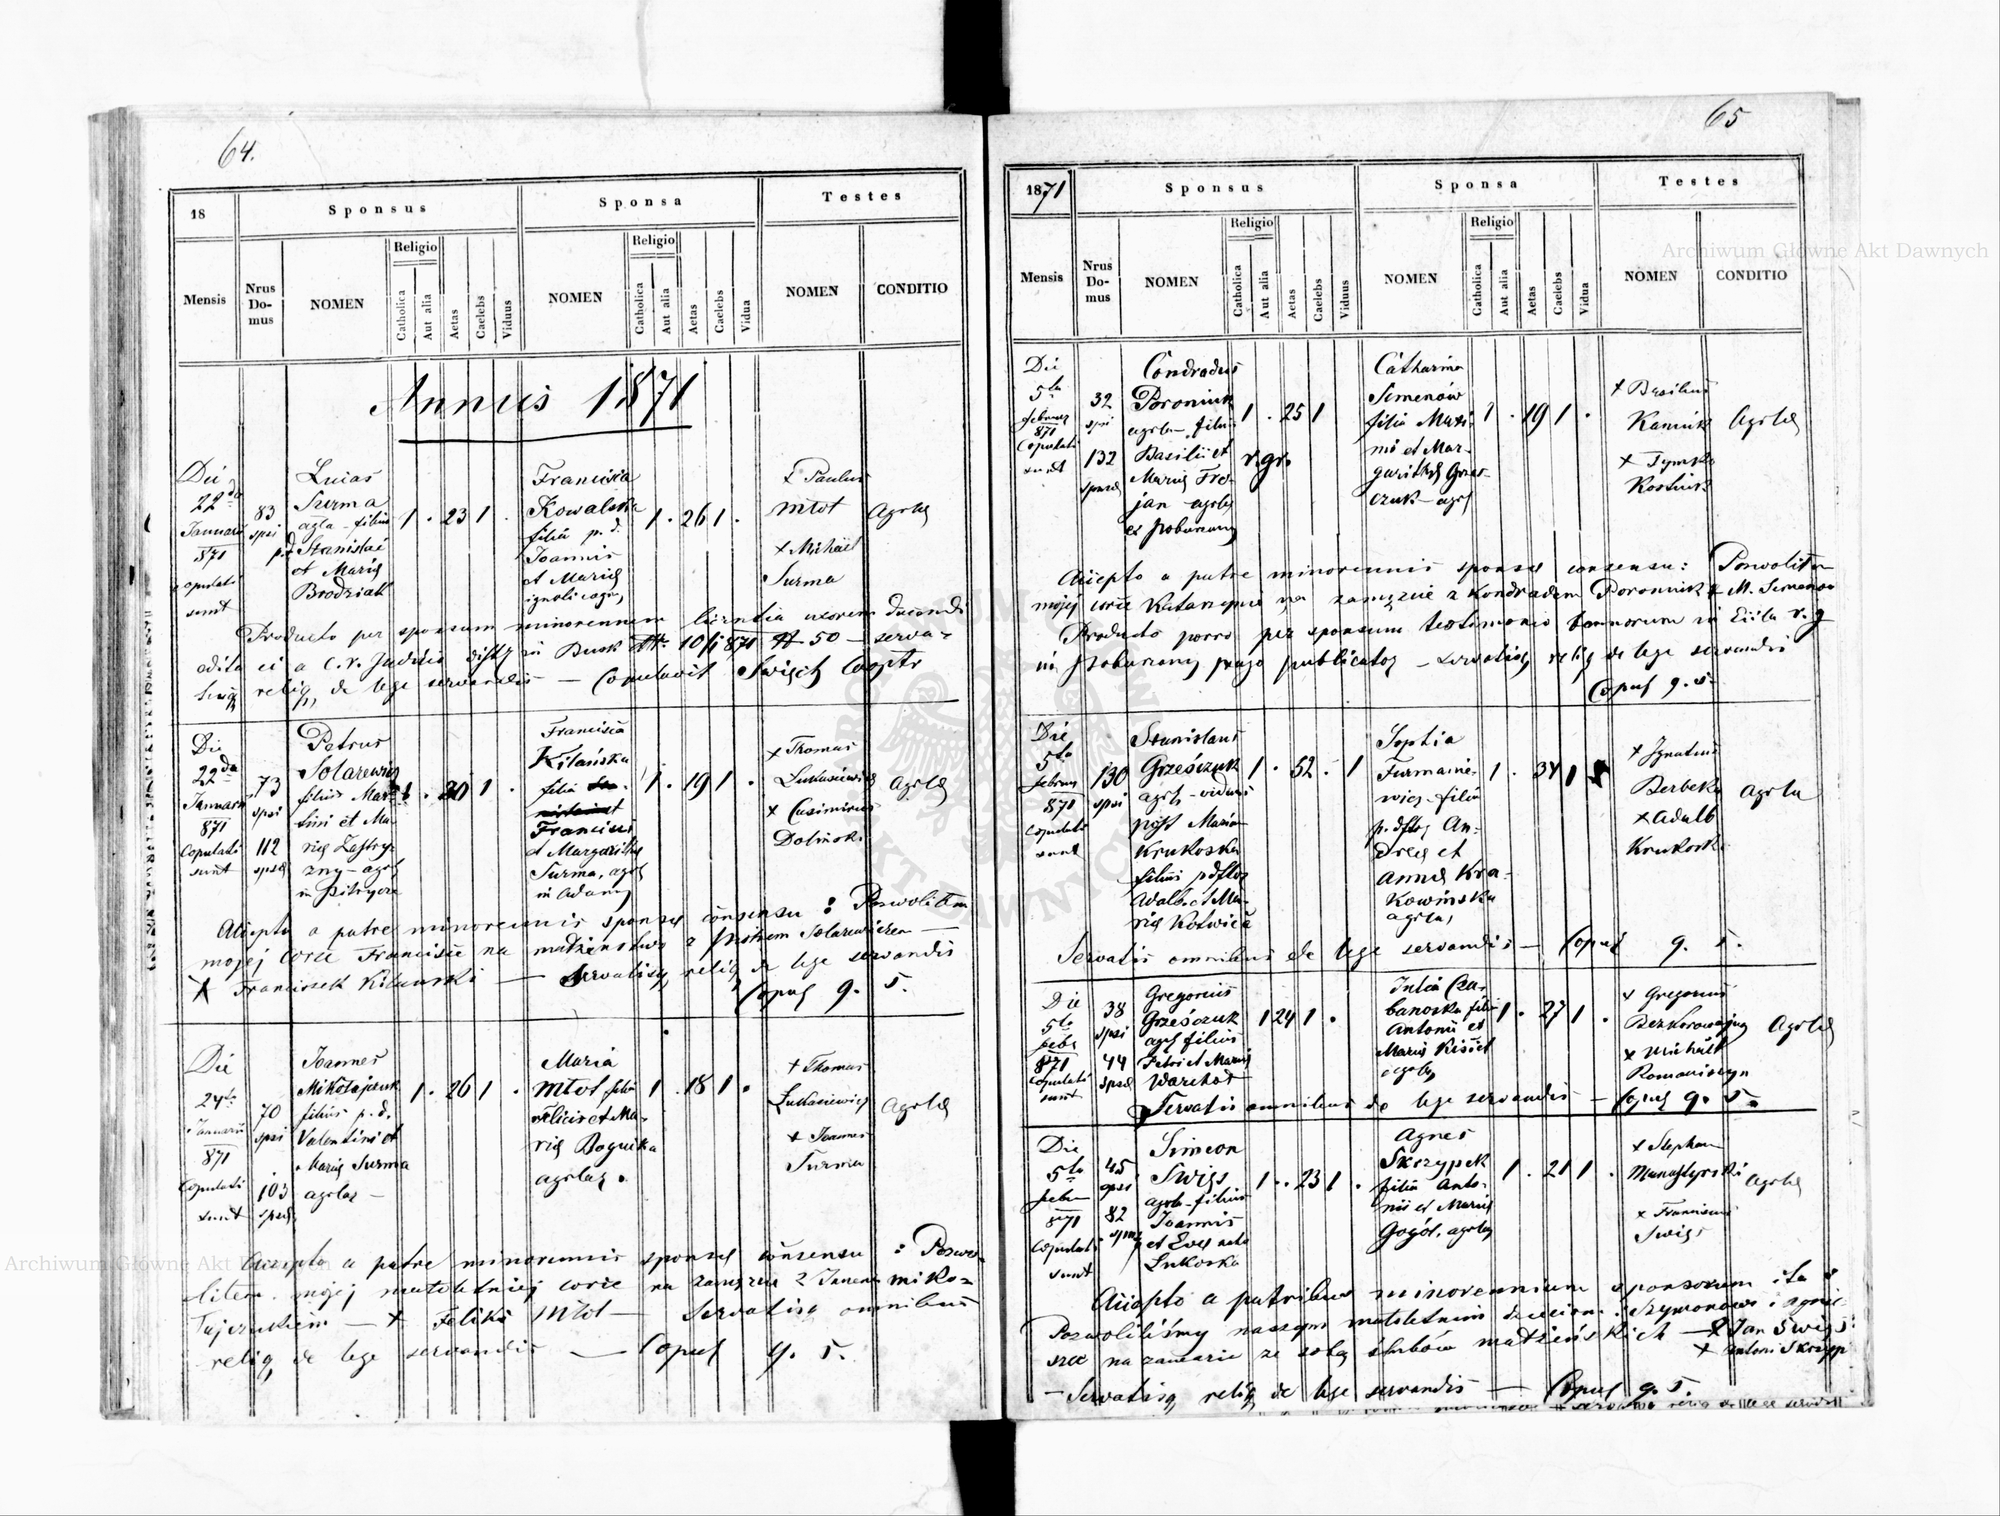 64.
18
Sponsus
Sponsa
Testes
Mensis
Nrus Domus
NOMEN
Religio
Catholica
Aut alia
Aetas
Caelebs
Viduus
NOMEN
Religio
Catholica
Aut alia
Aetas
Caelebs
Vidua
NOMEN
CONDITIO
Annus 1871
Die
22da
Januarii
871
Copulati
sunt
83
spsi
Lucas
Surma
agla - filius
p.d. Stanislai
et Mariæ
Brodziak
1 . 23 1 .
Francisca
Kowalska
filia p. d.
Joannis
et Mariæ
1 . 26 1 .
+ Paulus
Młot
+ Michael
Surma
Agrlæ
Producto per sponsum minorennem licentia uxorem ducendi
edita ei a C. r. Judicio in Busk 10/1 871 50 - serva-
tisq religq de lege servandis — Copulavit Swisch Cooptr
Die
22da
Januarii
871
Copulati
sunt
73
spsi
112
spsæ
Petrus
Solarewicz
filius Mar-
tini et Ma-
riæ
zny - agrl
1 . 20 1 .
Francisca
Kilańska
filia
Francisci
et Margarithæ
Surma, agrl
in Adamy
1 . 19 1 .
+ Thomas
Łukasiewicz
+ Casimirus
Dolinski
Agrlæ
Accepto a patre minorennis sponsæ consensu : Pozwoliłem
mojej córce Francisce na małżeństwo z Piotrem Solarewiczem —
+ Franciszek Kilanski — Servatisq religq de lege servandis
Copul q. s.
Die
24ta
Januarii
871
Copulati
sunt
70
spsi
103
spsæ
Joannes
Mikołajczuk
filius p. d.
Valentini et
Mariæ Surma
agrlar -
1 . 26 1 .
Maria
Młot filia
Felicis et Ma-
riæ Roguska
agrlar .
1 . 18 1 .
+ Thomas
Łukasiewicz
+ Joannes
Surma
Agrlæ
Accepto a patre minorennis sponsæ consensu : Pozwo-
liłem mojej małoletniej córce na zamęzcie z Janem Miko-
łajczukiem — + Feliks Młot — Servatisq omnibus
religq de lege servandis — Copul q. s.
65
1871
Sponsus
Sponsa
Testes
Mensis
Nrus Domus
NOMEN
Religio
Catholica
Aut alia
Aetas
Caelebs
Viduus
NOMEN
Religio
Catholica
Aut alia
Aetas
Caelebs
Vidua
NOMEN
CONDITIO
Die
5ta
februar
871
Copulati
sunt
32
spsi
132
sponsæ
Condradus
Poroniuk
agrla filius
Basilii et
Mariæ Tro-
jan agrlæ
ex Pobuzany
1 . 25 1
r. gr.
Catharina
Simenów
filia Maxi-
mi et Mar-
garithæ Grzes-
czuk - agrl
1 . 19 1 .
+ Basilius
Kaminski
+ Tymko
Agrlæ
Accepto a patre minorennis sponsæ consensu: Pozwoliłem
mojej córce Katarzynie na zamęzcie z Kondradem Poroniuk + M. Simenow
Producto porro per sponsum testimonio bannorum in Ecclia r. g
in Pobuzany publicatoq — Servatisq religq de lege servandis
Copul q. s.
Die
5ta
februar
871
Copulati
sunt
130
spsi
Stanislaus
Grześczuk
agrl - viduus
post Maria
Krukoska
filius pdftor
Adalb. et Ma-
riæ Kotwica
1 . 52 . 1
Sophia
Furmanie-
wicz - filia
p. dftor An-
dreæ et
Annæ Kra-
kowinska
agrlar
1 . 34 1
+ Ignatius
Berbeka
+ Adalb
Krukoski
Agrlæ
Servatis omnibus de lege servandis — Copul q. s.
Die
5ta
febr
871
Copulati
sunt
38
spsi
44
spsæ
Gregorius
Grześczuk
agrl filius
Petri et Mariæ
Warchoł
1 24 1 .
Julia Cza-
banoska filia
Antonii et
Mariæ
agrlar
1 . 27 1 .
+ Gregorius
Bezkorowajny
+ Michael
Romaniszyn
Agrlæ
Servatis omnibus de lege servandis — Copul q. s.
Die
5ta
febr
871
Copulati
sunt
45
spsi
82
sponsæ
Simeon
Swigs
agrl - filius
Joannis
et Evæ nata
Łukoska
1 . . 23 1 .
Agnes
Skrzypek
filia Anto-
nii et Mariæ
Gogół, agrlar
1 . 21 1 .
+ Stephan
Manastyrski
+ Franciscus
Swigs
Agrlæ
Accepto a patribus minorennium sponsorum ita :
Pozwoliliśmy naszym małoletnim dzieciom : Szymonowi i Agnie-
szce na zawarcie ze sobą ślubów małżeńskich — + Jan Swigs
+ Antoni Skrzyp
— Servatisq religq de lege servandis — Copul q. s.
Archiwum Główne Akt Dawnych
Archiwum Główne Akt Dawnych